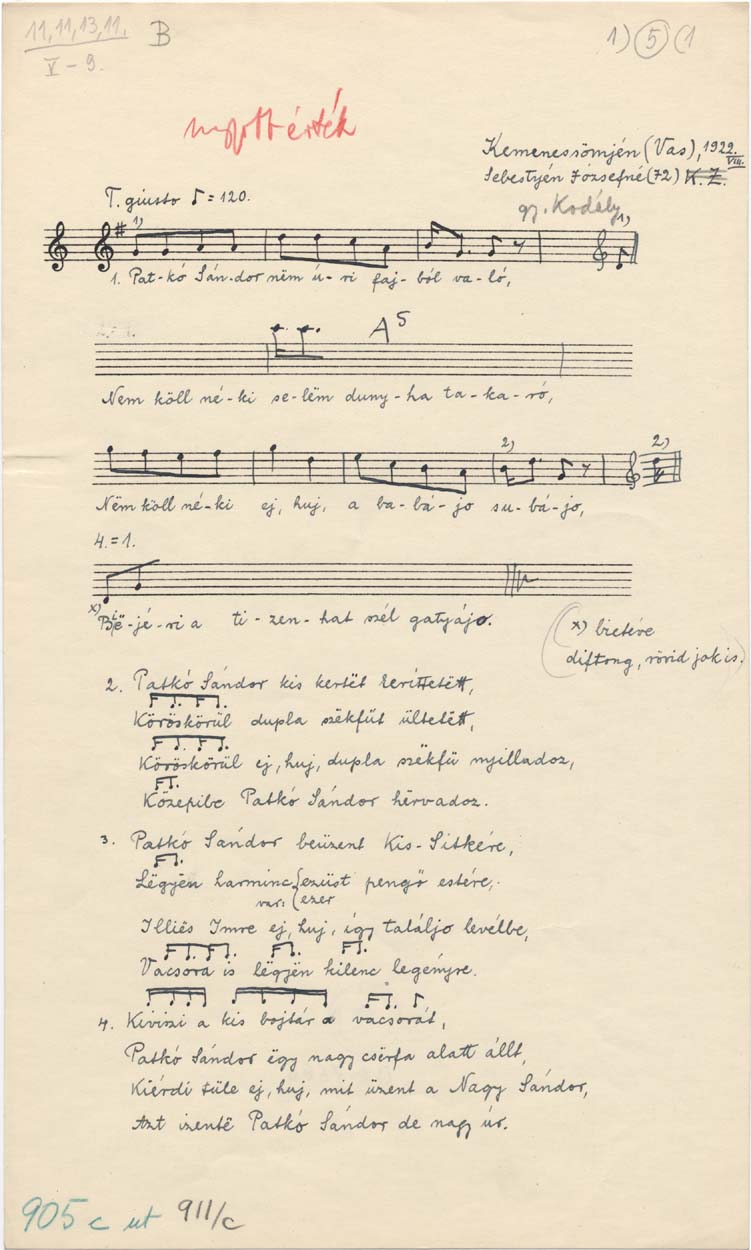 11, 11, 13, 11. B 1) 5 (1
V – 9.
Kemenessömjén (Vas), 1922. VIII.
Sebestyén Józsefné (72) K. Z.
gy. Kodály
T. giusto ♪ = 120.
1) 1)
1. Pat-kó Sán-dor nëm ú-ri faj-ból va-ló,
A5
Nem köll né-ki se-lëm duny-ha ta-ka-ró,
2) 2)
Nëm köll né-ki ej, huj, a ba-bá-jo su-bá-jo,
4. = 1.
x)
-jé-ri a ti-zen-hat szél gatyájo.
x) bietëve
diftong, rövid jak is.
2. Patkó Sándor kis kertët keríttetëtt,
Köröskörül dupla szëkfűt ültetëtt,
Köröskörül ej, huj, dupla szëkfű nyilladoz,
Közepibe Patkó Sándor hërvadoz.
3. Patkó Sándor beüzent Kis-Sitkére,
Lëgyën harminc ezüst pengő estére,
var: ezer
Illiés Imre ej, huj, így találjo levélbe,
Vacsora is lëgyën kilenc legényre.
4. Kiviszi a kis bojtár a vacsorát,
Patkó Sándor ëgy nagy csërfa alatt állt,
Kiérdi tüle ej, huj, mit üzent a Nagy Sándor,
Azt izentë Patkó Sándor de nagy úr.
905 c ut 911/c